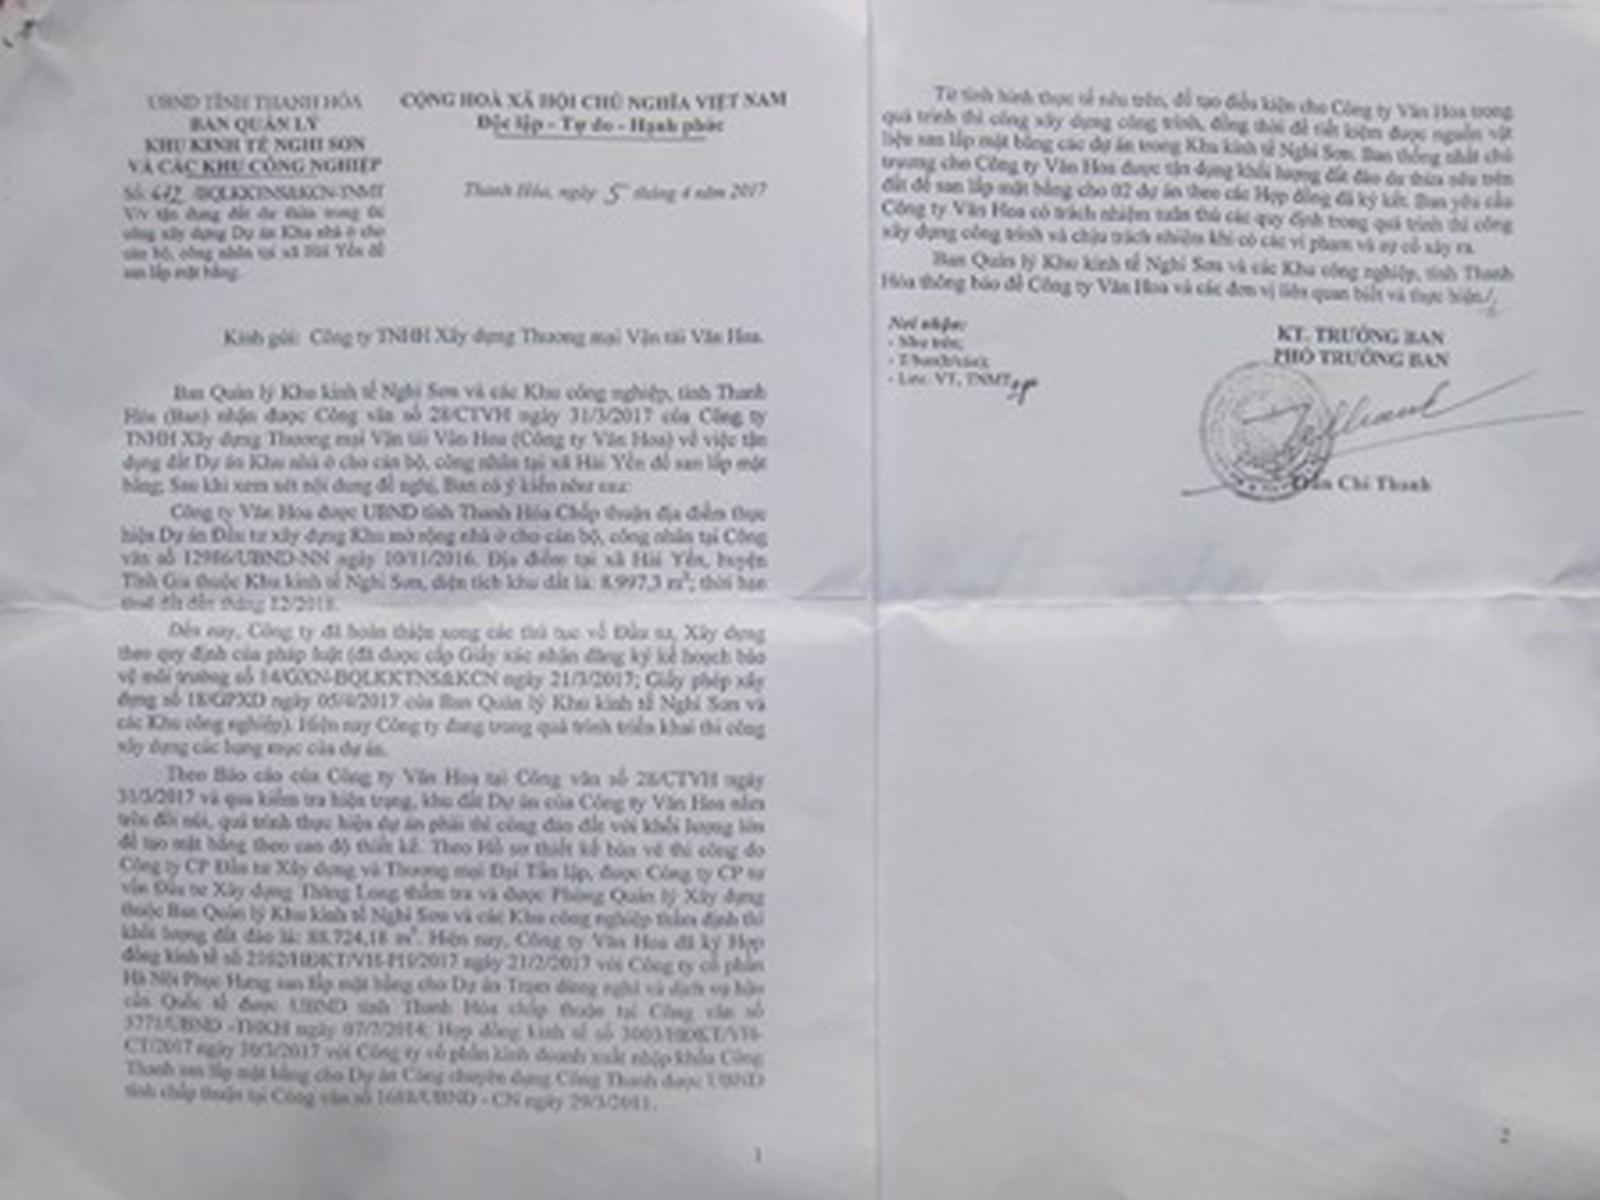 UBND TỈNH THANH HÓA
BAN QUẢN LÝ
KHU KINH TẾ NGHI SƠN
VÀ CÁC KHU CÔNG NGHIỆP
Số: 672 /BQLKKTNS&KCN-TNMT
V/v tận dụng đất dư thừa trong thi
công xây dựng Dự án Khu nhà ở cho
cán bộ, công nhân tại xã Hải Yến để
san lấp mặt bằng.
CỘNG HOÀ XÃ HỘI CHỦ NGHĨA VIỆT NAM
Độc lập - Tự do - Hạnh phúc
Thanh Hóa, ngày 5 tháng 4 năm 2017
Kính gửi: Công ty TNHH Xây dựng Thương mại Vận tải Văn Hoa.
Ban Quản lý Khu kinh tế Nghi Sơn và các Khu công nghiệp, tỉnh Thanh
Hóa (Ban) nhận được Công văn số 28/CTVH ngày 31/3/2017 của Công ty
TNHH Xây dựng Thương mại Vận tải Văn Hoa (Công ty Văn Hoa) về việc tận
dụng đất Dự án Khu nhà ở cho cán bộ, công nhân tại xã Hải Yến để san lấp mặt
bằng. Sau khi xem xét nội dung đề nghị, Ban có ý kiến như sau:
Công ty Văn Hoa được UBND tỉnh Thanh Hóa Chấp thuận địa điểm thực
hiện Dự án Đầu tư xây dựng Khu mở rộng nhà ở cho cán bộ, công nhân tại Công
văn số 12986/UBND-NN ngày 10/11/2016. Địa điểm tại xã Hải Yến, huyện
Tĩnh Gia thuộc Khu kinh tế Nghi Sơn, diện tích khu đất là: 8.997,3 m²; thời hạn
thuê đất đến tháng 12/2018.
Đến nay, Công ty đã hoàn thiện xong các thủ tục về Đầu tư, Xây dựng
theo quy định của pháp luật (đã được cấp Giấy xác nhận đăng ký kế hoạch bảo
vệ môi trường số 14/GXN-BQLKKTNS&KCN ngày 21/3/2017; Giấy phép xây
dựng số 18/GPXD ngày 05/4/2017 của Ban Quản lý Khu kinh tế Nghi Sơn và
các Khu công nghiệp). Hiện nay Công ty đang trong quá trình triển khai thi công
xây dựng các hạng mục của dự án.
Theo Báo cáo của Công ty Văn Hoa tại Công văn số 28/CTVH ngày
31/3/2017 và qua kiểm tra hiện trạng, khu đất Dự án của Công ty Văn Hoa nằm
trên đồi núi, quá trình thực hiện dự án phải thi công đào đất với khối lượng lớn
để tạo mặt bằng theo cao độ thiết kế. Theo Hồ sơ thiết kế bản vẽ thi công do
Công ty CP Đầu tư Xây dựng và Thương mại Đại Tấn lập, được Công ty CP tư
vấn Đầu tư Xây dựng Thăng Long thẩm tra và được Phòng Quản lý Xây dựng
thuộc Ban Quản lý Khu kinh tế Nghi Sơn và các Khu công nghiệp thẩm định thì
khối lượng đất đào là: 88.724,18 m³. Hiện nay, Công ty Văn Hoa đã ký Hợp
đồng kinh tế số 2102/HĐKT/VH-PH/2017 ngày 21/2/2017 với Công ty cổ phần
Hà Nội Phục Hưng san lấp mặt bằng cho Dự án Trạm dừng nghỉ và dịch vụ hậu
cần Quốc tế được UBND tỉnh Thanh Hóa chấp thuận tại Công văn số
5771/UBND -THKH ngày 07/7/2014; Hợp đồng kinh tế số 3003/HĐKT/VH-
CT/2017 ngày 30/3/2017 với Công ty cổ phần kinh doanh xuất nhập khẩu Công
Thanh san lấp mặt bằng cho Dự án Cảng chuyên dụng Công Thanh được UBND
tỉnh chấp thuận tại Công văn số 1688/UBND - CN ngày 29/3/2011.
1
Từ tình hình thực tế nêu trên, để tạo điều kiện cho Công ty Văn Hoa trong
quá trình thi công xây dựng công trình, đồng thời để tiết kiệm được nguồn vật
liệu san lấp mặt bằng các dự án trong Khu kinh tế Nghi Sơn. Ban thống nhất chủ
trương cho Công ty Văn Hoa được tận dụng khối lượng đất đào dư thừa nêu trên
đất để san lấp mặt bằng cho 02 dự án theo các Hợp đồng đã ký kết. Ban yêu cầu
Công ty Văn Hoa có trách nhiệm tuân thủ các quy định trong quá trình thi công
xây dựng công trình và chịu trách nhiệm khi có các vi phạm và sự cố xảy ra.
Ban Quản lý Khu kinh tế Nghi Sơn và các Khu công nghiệp, tỉnh Thanh
Hóa thông báo để Công ty Văn Hoa và các đơn vị liên quan biết và thực hiện./.
Nơi nhận:
- Như trên;
- Lưu: VT, TNMT
KT. TRƯỞNG BAN
PHÓ TRƯỞNG BAN
Trần Chí Thanh
2